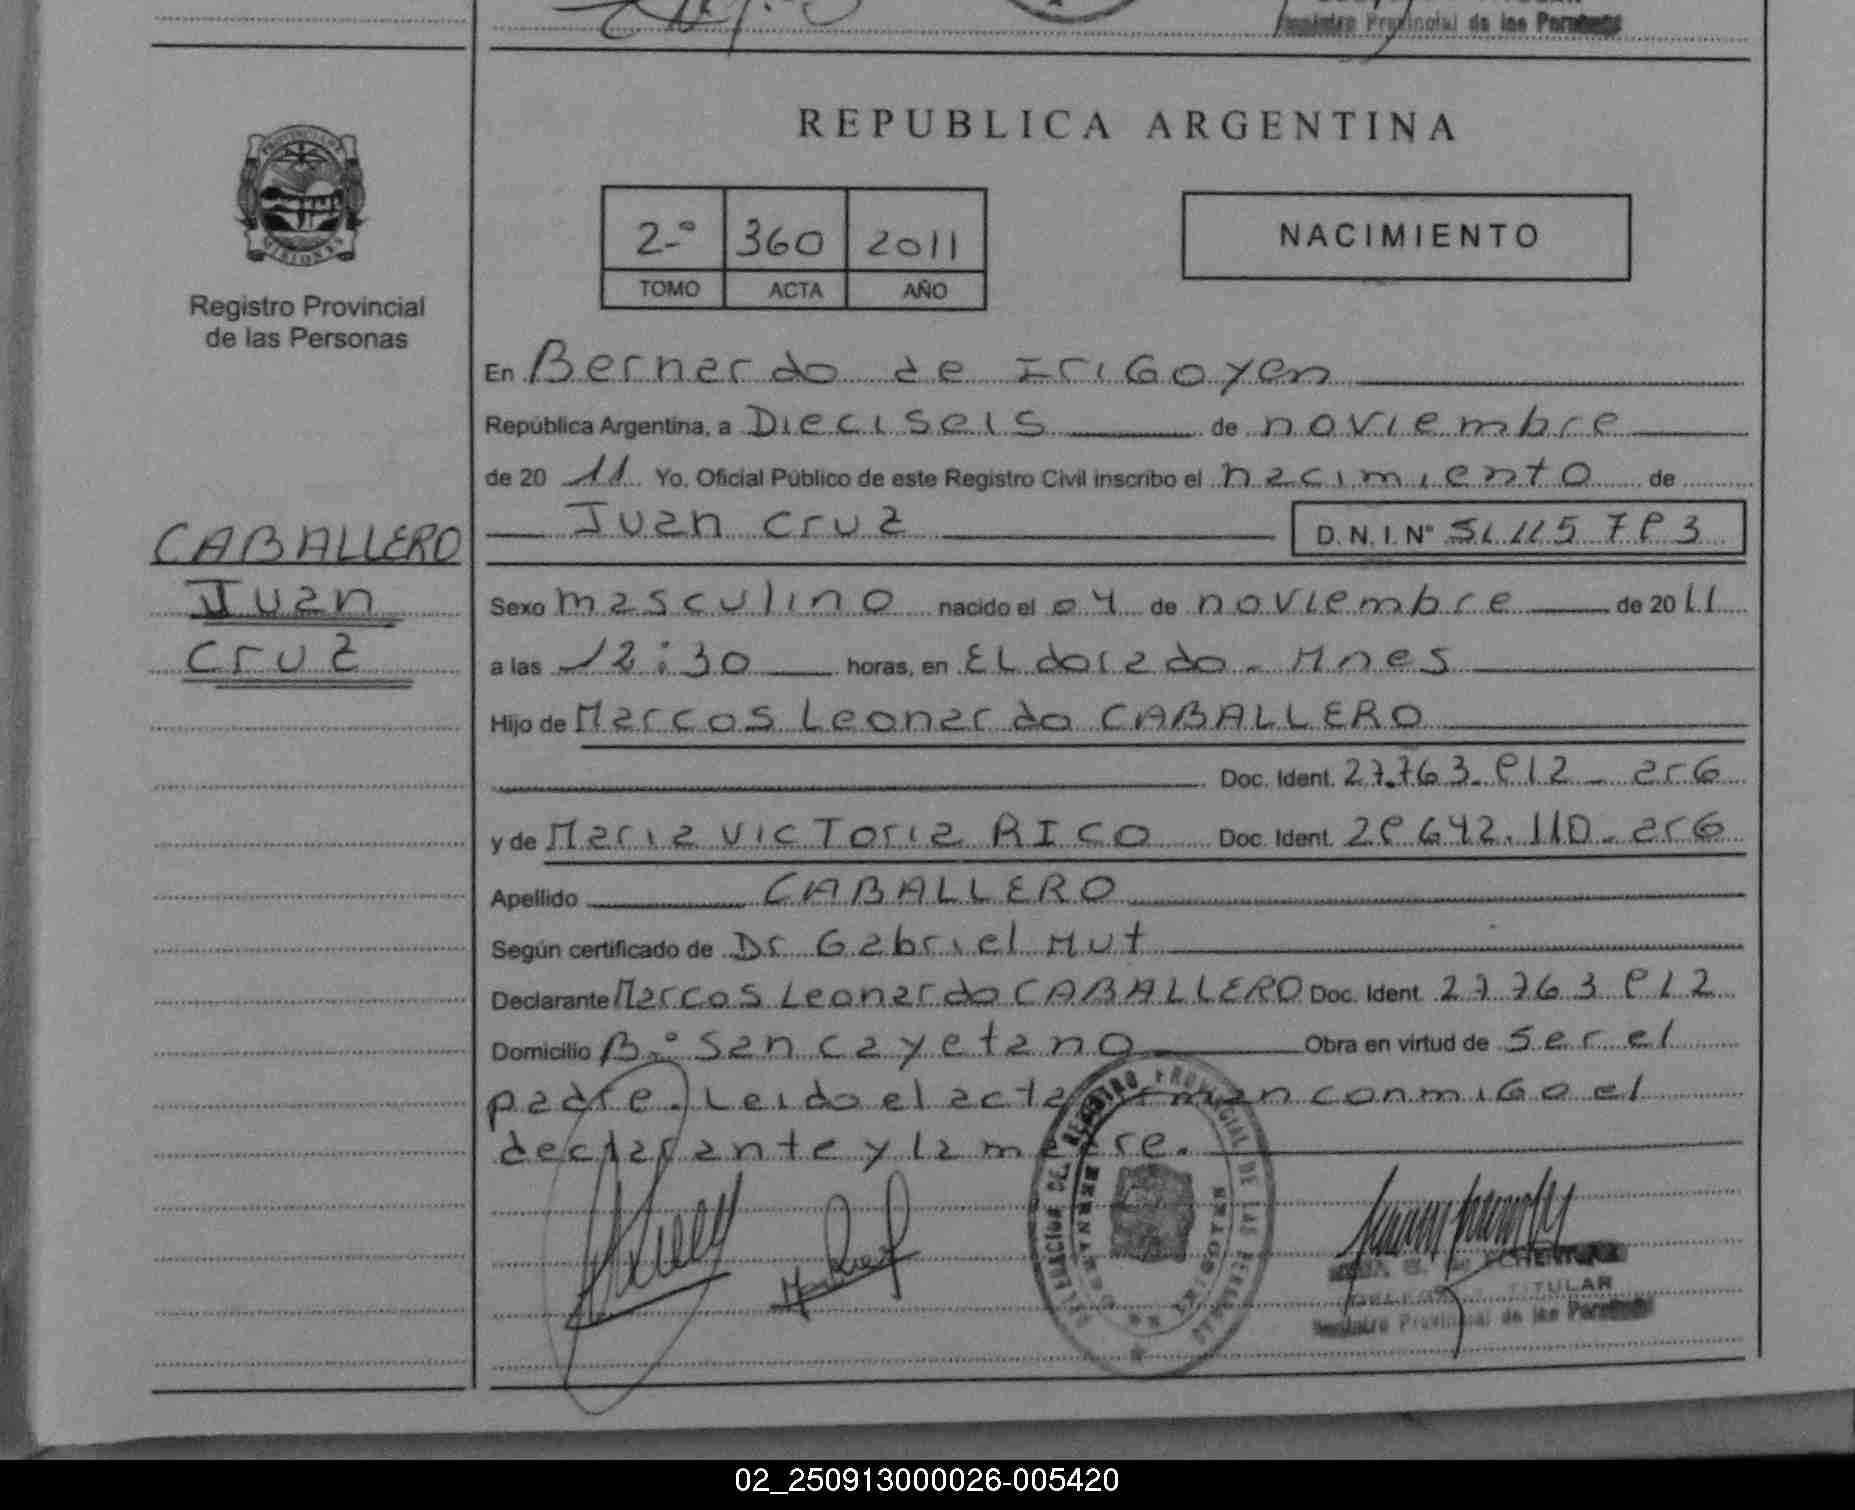 Registro Provincial de las Personas
REPUBLICA ARGENTINA
PROVINCIA DE
MISIONES
Registro Provincial
de las Personas
2-º 360 2011
TOMO ACTA AÑO
NACIMIENTO
En Bernardo de IriGoyen
República Argentina, a Dieciseis de noviembre
de 20 11 Yo. Oficial Público de este Registro Civil inscribo el nacimiento de
Juan cruz D. N. I. Nº 51.115 783
CABALLERO
Juan
cruz
Sexo masculino nacido el 04 de noviembre de 2011
a las 12:30 horas, en ELdorado - Mnes
Hijo de Marcos Leonardo CABALLERO
Doc. Ident. 27.763.812 - arG
y de Maria VICToria RICO Doc. Ident. 28.642.110 - arG
Apellido CABALLERO
Según certificado de Dr Gabriel Mut
Declarante Marcos Leonardo CABALLERO Doc. Ident. 27 763 812
Domicilio B.º San cayetano Obra en virtud de ser el
padre. Leido el acta firman conmiGo el
declarante y la madre.
DELEGACION DEL REGISTRO PROVINCIAL DE LAS PERSONAS
BERNARDO DE IRIGOYEN
TITULAR
Registro Provincial de las Personas
02_250913000026-005420